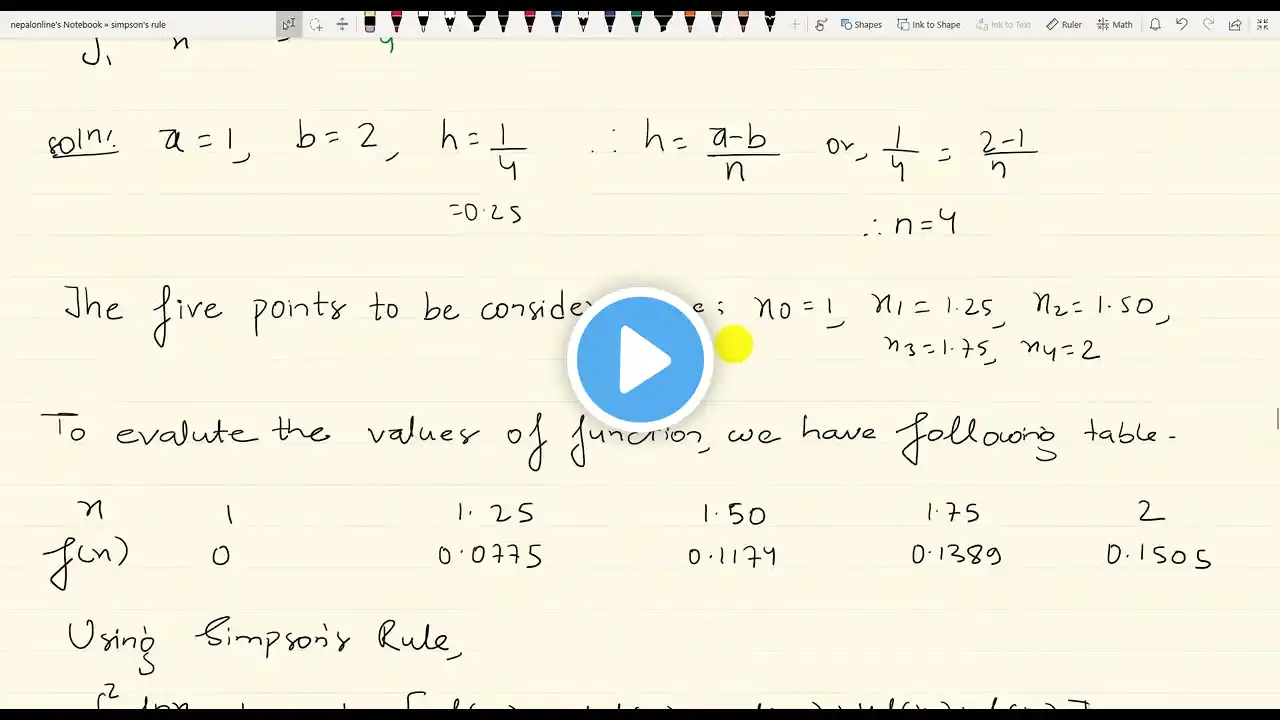 nepalonline's Notebook » simpson's rule
Shapes Ink to Shape Ink to Text Ruler Math
soln: a = 1, b = 2, h = 1/4 ∴ h = a-b/n or, 1/4 = 2-1/n
= 0.25
∴ n = 4
The five points to be x0 = 1, x1 = 1.25, x2 = 1.50,
x3 = 1.75, x4 = 2
To evalute the values of function, we have following table -
x 1 1.25 1.50 1.75 2
f(x) 0 0.0775 0.1174 0.1389 0.1505
Using Simpson's Rule,